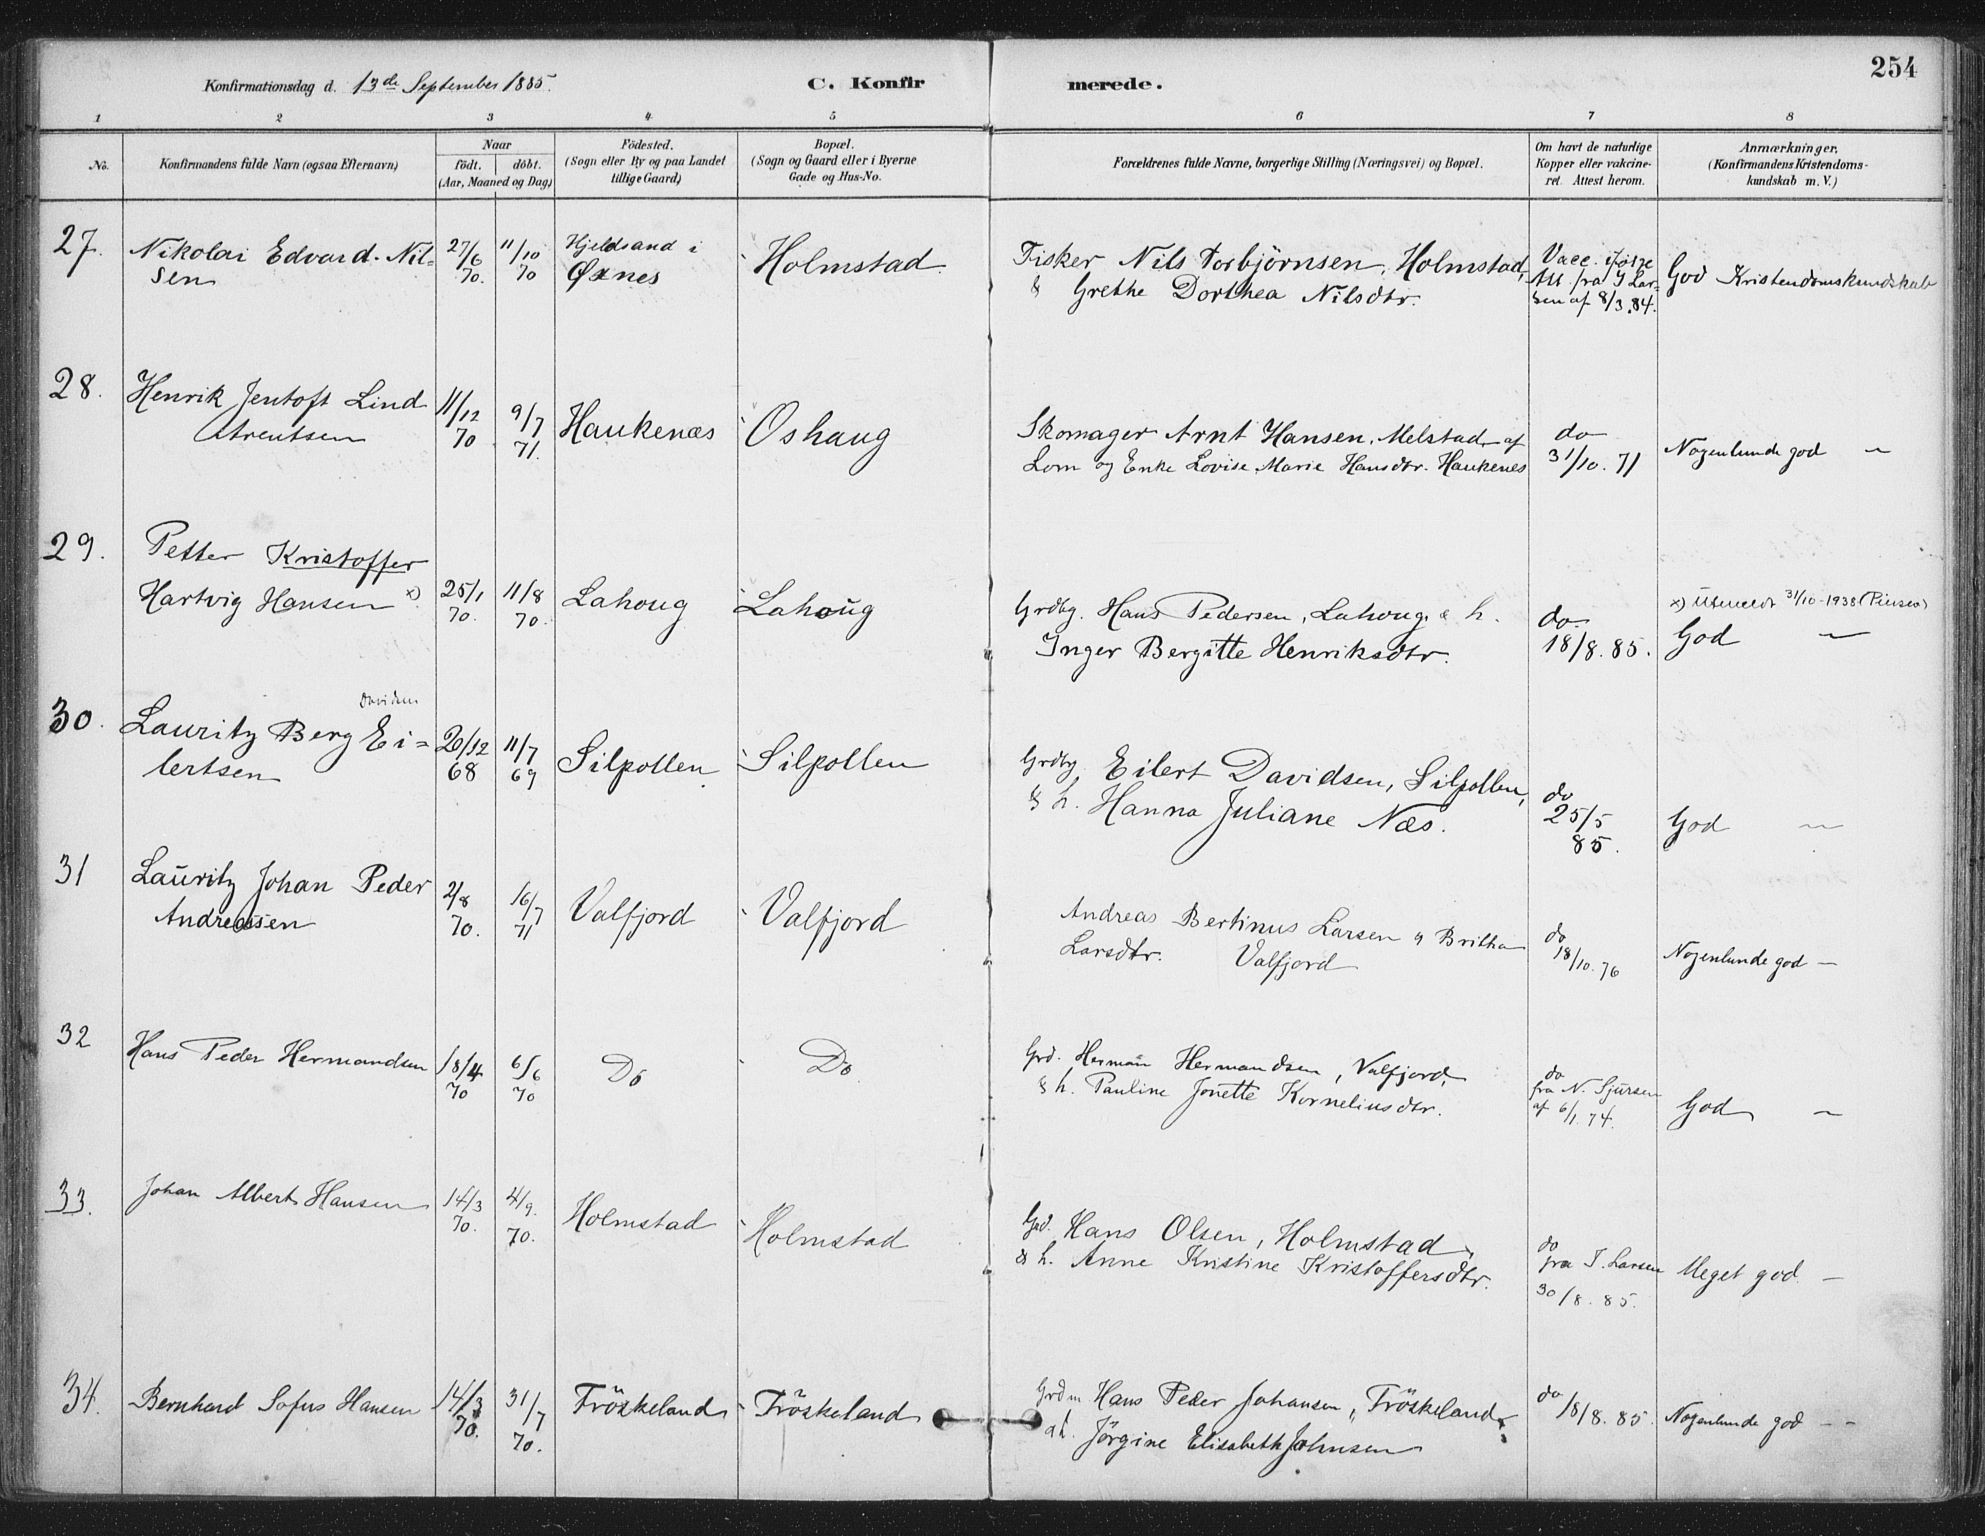 254
Konfirmationsdag d. 13de September 1885. C. Konfir merede.
1 2 3 4 5 6 7 8
No. Konfirmandens fulde Navn (ogsaa Efternavn) Naar födt. döbt. (Aar, Maaned og Dag) Födested. (Sogn eller By og paa Landet tillige Gaard) Bopæl. (Sogn og Gaard eller i Byerne Gade og Hus-No. Forældrenes fulde Navne, borgerlige Stilling (Næringsvei) og Bopæl. Om havt de naturlige Kopper eller vakcineret. Attest herom. Anmærkninger. (Konfirmandens Kristendomskundskab m. V.)
27. Nikolai Edvard Nil- 27/6 11/10 Hjeldsand i Holmstad Fisker Nils Torbjørnsen, Holmstad, Vacc. ifølge God Kristendomskundskab
sen 70. 70 Øxnes & Grethe Dorthea Nilsdtr. Att fra J Lar-
sen af 8/3.84.
28. Henrik Jentoft Lind 11/12 9/7 Haukenæs Oshaug Skomager Arnt Hansen, Melstad af do Nogenlunde god —
Arentsen 70 71. Lom og Enke Lovise Marie Hansdtr. Haukenes 31/10. 71
29. Petter Kristoffer
Hartvig Hansen x) 25/1 11/8 Lahoug Lahoug Grdbg. Hans Pedersen, Lahoug. & h. do x) Utmeldt 31/10-1938
70. 70. Inger Bergitte Henriksdtr. 18/8. 85. God —
Davidsen
30. Lauritz Berg Ei= 20/12 11/7 Silpollen Silpollen Grdbg. Eilert Davidsen, Silpollen, do
lertsen 68 69 & h. Hanna Juliane Næs. 25/5 God —
85.
31 Lauritz Johan Peder 2/8 16/7 Valfjord Valfjord Andreas Bertinus Larsen & Britha do Nogenlunde god —
Andreassen 70. 71 Larsdtr. Valfjord 18/10. 76
32 Hans Peder Hermandsen 18/4 6/6 Do Do Grd. Herman Hermandsen, Valfjord, do
70 70 & h. Pauline Jonette Korneliusdtr. fra N. Sjursen God —
af 6/1. 74.
33. Johan Albert Hansen 14/3 4/9. Holmstad Holmstad Grd. Hans Olsen, Holmstad, do
70. 70. & h. Anne Kristine Kristoffersdtr. fra J. Larsen Meget god. —
30/8. 85.
34. Bernhard Sofus Hansen 14/3 31/7 Tröskeland Tröskeland Grdm Hans Peder Johansen, Tröskeland do 18/8. 85. Nogenlunde god - -
70. 70. & h. Jörgine Elisabeth Johnsen